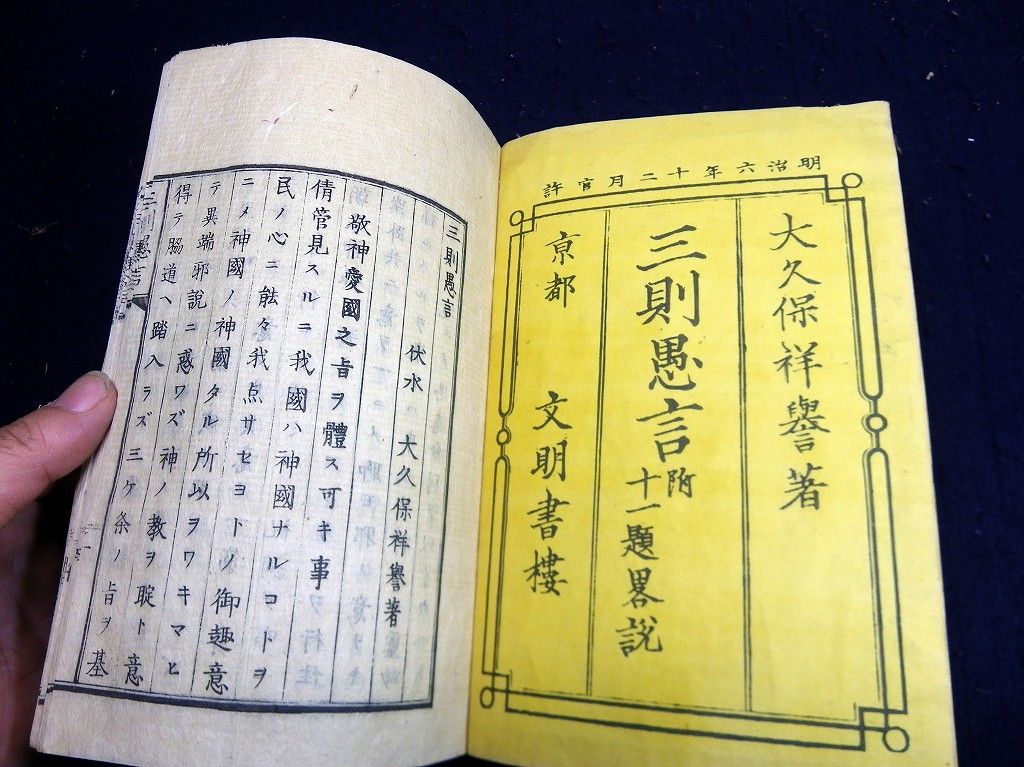 明治六年十二月官許
大久保祥譽著
三則愚言
附
十一題畧説
京都 文明書樓
三則愚言
伏水 大久保祥譽著
敬神愛國之旨ヲ體ス可キ事
倩管見スルニ我國ハ神國ナルコトヲ
民ノ心ニ能々我点サセヨトノ御趣意
ニメ神國ノ神國タル所以ヲワキマヒ
テ異端邪説ニ惑ワズ神ノ教ヲ聢ト意
得テ脇道ヘ踏入ラズ三ケ条ノ旨ヲ基
三則愚言